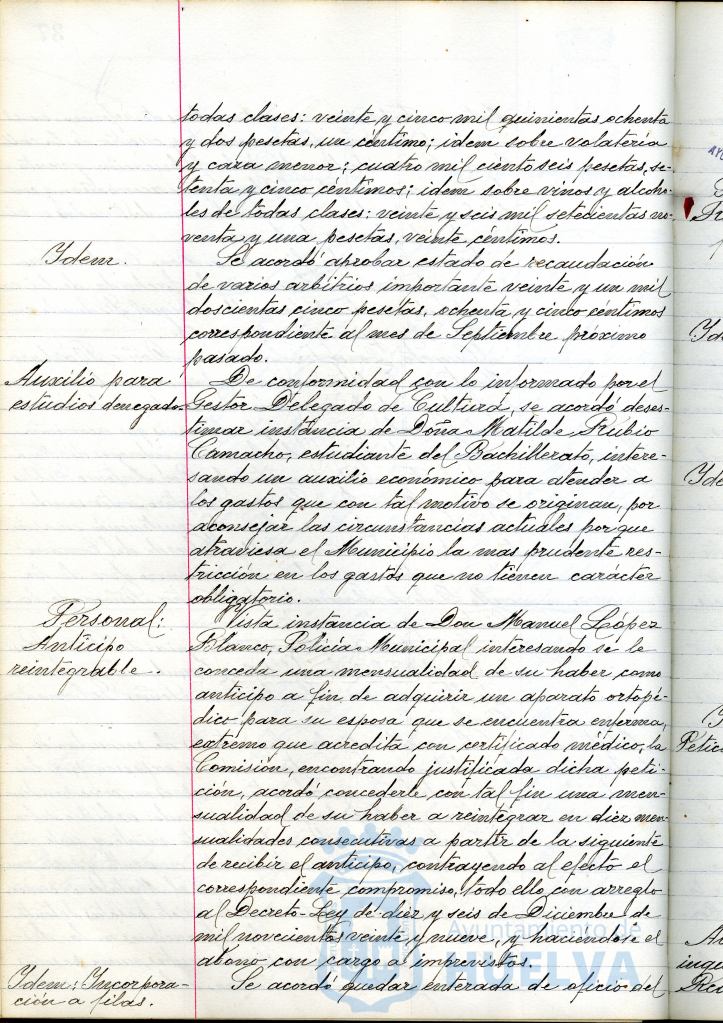 todas clases: veinte y cinco mil quinientas ochenta
y dos pesetas, un céntimo; idem sobre volatería
y caza menor; cuatro mil ciento seis pesetas, se-
tenta y cinco céntimos; idem sobre vinos y alcoho-
les de todas clases: veinte y seis mil setecientas no-
venta y una pesetas, veinte céntimos.
Idem.
Se acordó aprobar estado de recaudación
de varios arbitrios importante veinte y un mil
doscientas cinco pesetas, ochenta y cinco céntimos
correspondiente al mes de Septiembre próximo
pasado.
Auxilio para
estudios denegado.
De conformidad con lo informado por el
Gestor Delegado de Cultura, se acordó deses-
timar instancia de Doña Matilde Rubio
Camacho, estudiante del Bachillerato, intere-
sando un auxilio económico para atender a
los gastos que con tal motivo se originan, por
aconsejar las circunstancias actuales por que
atraviesa el Municipio la mas prudente res-
tricción en los gastos que no tienen carácter
obligatorio.
Personal:
Anticipo
reintegrable.
Vista instancia de Don Manuel López
Blanco, Policía Municipal interesando se le
conceda una mensualidad de su haber como
anticipo a fin de adquirir un aparato ortopé-
dico para su esposa que se encuentra enferma,
extremo que acredita con certificado médico, la
Comisión, encontrando justificada dicha peti-
ción, acordó concederle con tal fin una men-
sualidad de su haber a reintegrar en diez men-
sualidades consecutivas a partir de la siguiente
de recibir el anticipo, contrayendo al efecto el
correspondiente compromiso, todo ello con arreglo
al Decreto-Ley de diez y seis de Diciembre de
mil novecientos veinte y nueve, y haciéndose el
abono con cargo a imprevistos.
Idem: Incorpora-
ción a filas.
Se acordó quedar enterada de oficio del
Ayuntamiento de
HUELVA